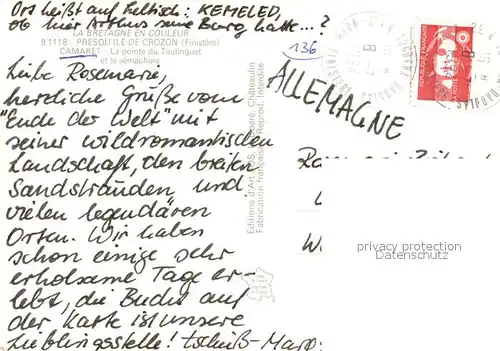 Ort heißt auf Keltisch: KEMELED,
ob hier Arthus seine Burg hatte...?
LA BRETAGNE EN COULEUR
9.1118 - PRESQU'ILE DE CROZON (Finistère)
CAMARET - La pointe du Toulinguet
et le sémaphore
136
RÉPUBLIQUE FRANÇAISE
ALLEMAGNE
Liebe Rosemarie,
herzliche Grüße vom
"Ende der Welt" mit
seiner wildromantischen
Landschaft, den breiten
Sandstränden und
vielen legendären
Orten. Wir haben
schon einige sehr
erholsame Tage er-
lebt, die Bucht auf
der Karte ist unsere
Lieblingsstelle! tschüß - Maro
Editions d'Art JOS, Châteaulin
Fabrication française - Reprod. Interdite
W
pictures by AKPOOL